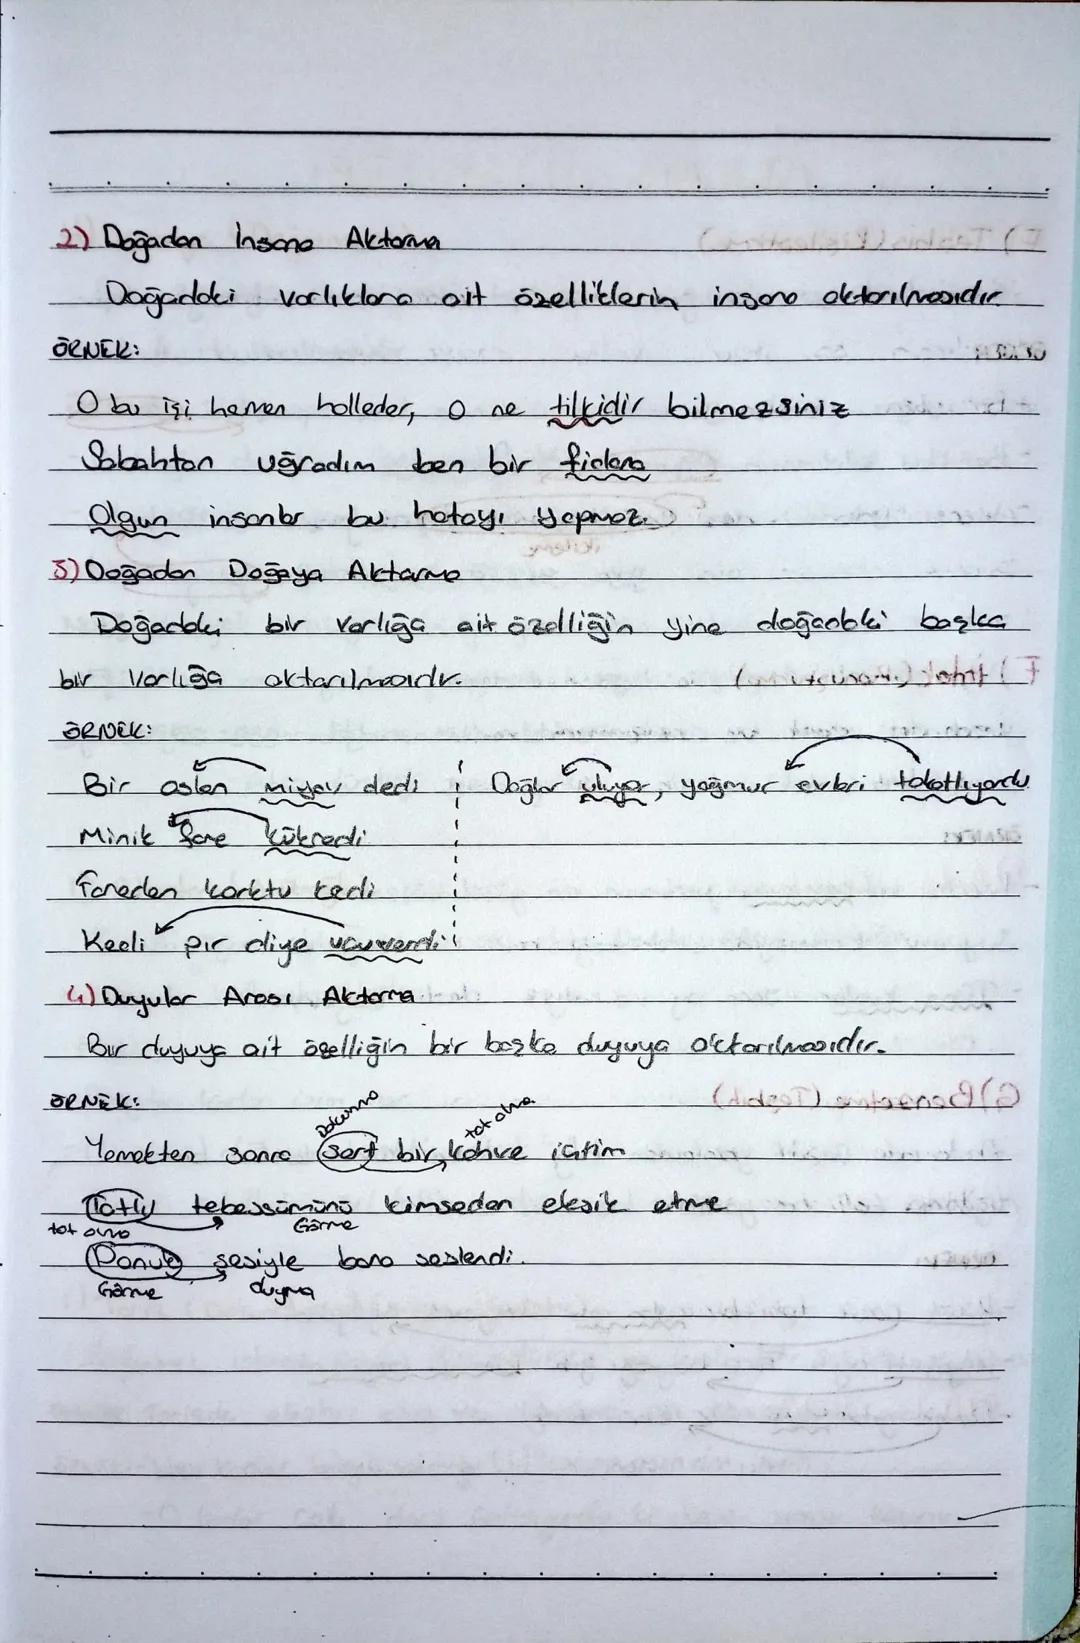 2) Doğadan İnsana Aktarma
Doğadaki varlıklara ait özelliklerin insana aktarılmasıdır.
ÖRNEK:
O bu işi hemen halleder, o ne tilkidir bilmezsiniz
Sabahtan uğradım ben bir fidana
Olgun insanlar bu hatayı yapmaz.
3) Doğadan Doğaya Aktarma
Doğadaki bir varlığa ait özelliğin yine doğadaki başka
bir varlığa aktarılmasıdır.
ÖRNEK:
Bir aslan miyav dedi
Minik fare kükredi
Fareden korktu kedi
Kedi pır diye uçuverdi
Dağlar uluyor, yağmur evleri tokatlıyordu
4) Duyular Arası Aktarma
Bir duyuya ait özelliğin bir başka duyuya aktarılmasıdır.
ÖRNEK:
Dokunma tat alma
Yemekten sonra sert bir kahve içtim
Tatlı tebessümünü kimseden eksik etme
tat alma Görme
Donuk sesiyle bana seslendi.
Görme duyma